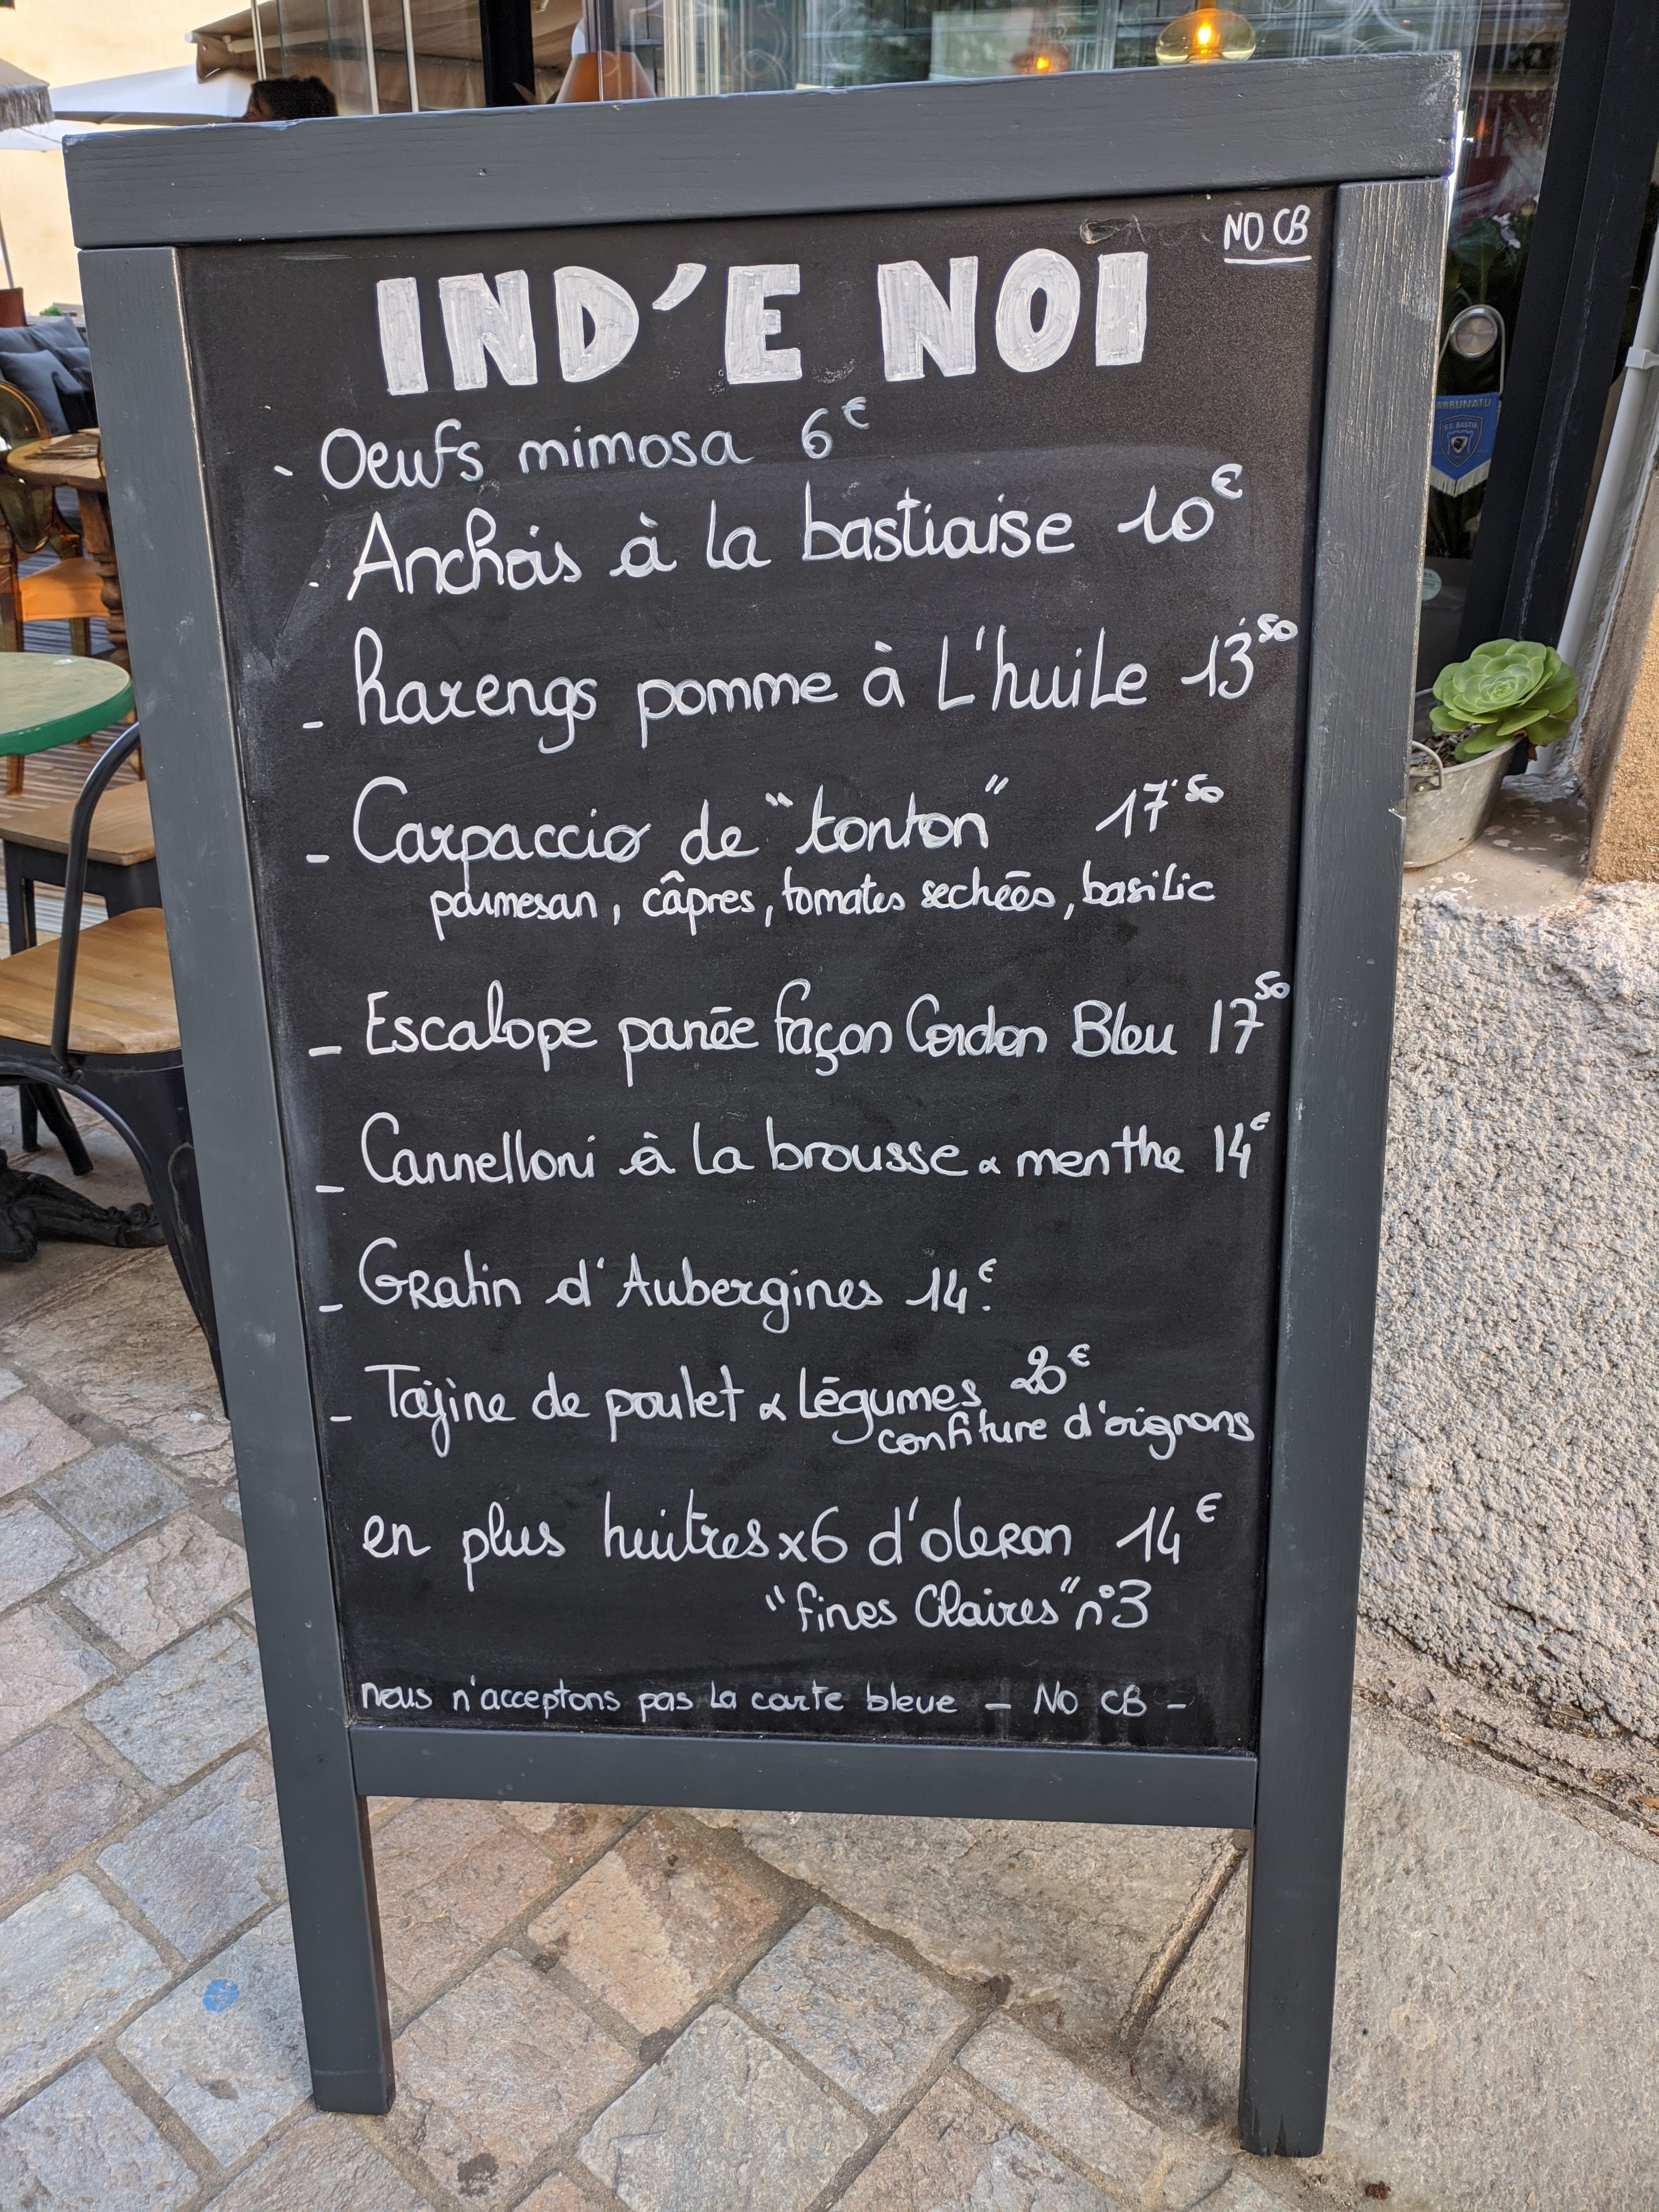 NO CB
IND'E NOI
- Oeufs mimosa 6€
- Anchois à la bastiaise 10€
- harengs pomme à L'huile 13,50
- Carpaccio de "tonton" 17,50
parmesan, câpres, tomates sechées, basilic
- Escalope panée façon Cordon Bleu 17 50
- Cannelloni à la brousse & menthe 14€
- Gratin d'Aubergines 14€.
- Tajine de poulet & Légumes 20€
confiture d'oignons
en plus huitres x6 d'oleron 14€
"fines Claires" n°3
nous n'acceptons pas la carte bleue - NO CB -
S.C. BASTIA